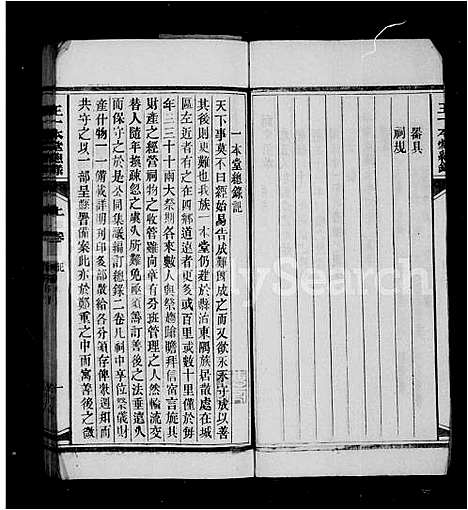 器具
祠規
王一本堂總錄
一本堂總錄記
天下事莫不曰經始易告成難既成之而又欲永守成以善
其後則更難也我族一本堂仍建於縣治東隅族居散處在城
區左近者有之在四鄉道遠或數十里僅於每
年三三十十兩大祭期各來數人與祭趨蹌瞻拜信宿言旋其
財產之經營祠物之收管雖向章有分班管理之人然輪流交
替人多事換疎忽之虞久所難免必須籌訂善後之法垂遠久
而保守之於是公同集議編訂總錄二卷凡祠中享位祭儀財
產什物一一備載詳明刊印 部給各分領存俾衆週知而
共守之以一部呈縣署備案此亦於鄭重之中而寓善後之微
王一本堂總錄
上卷
記
一
MySearch